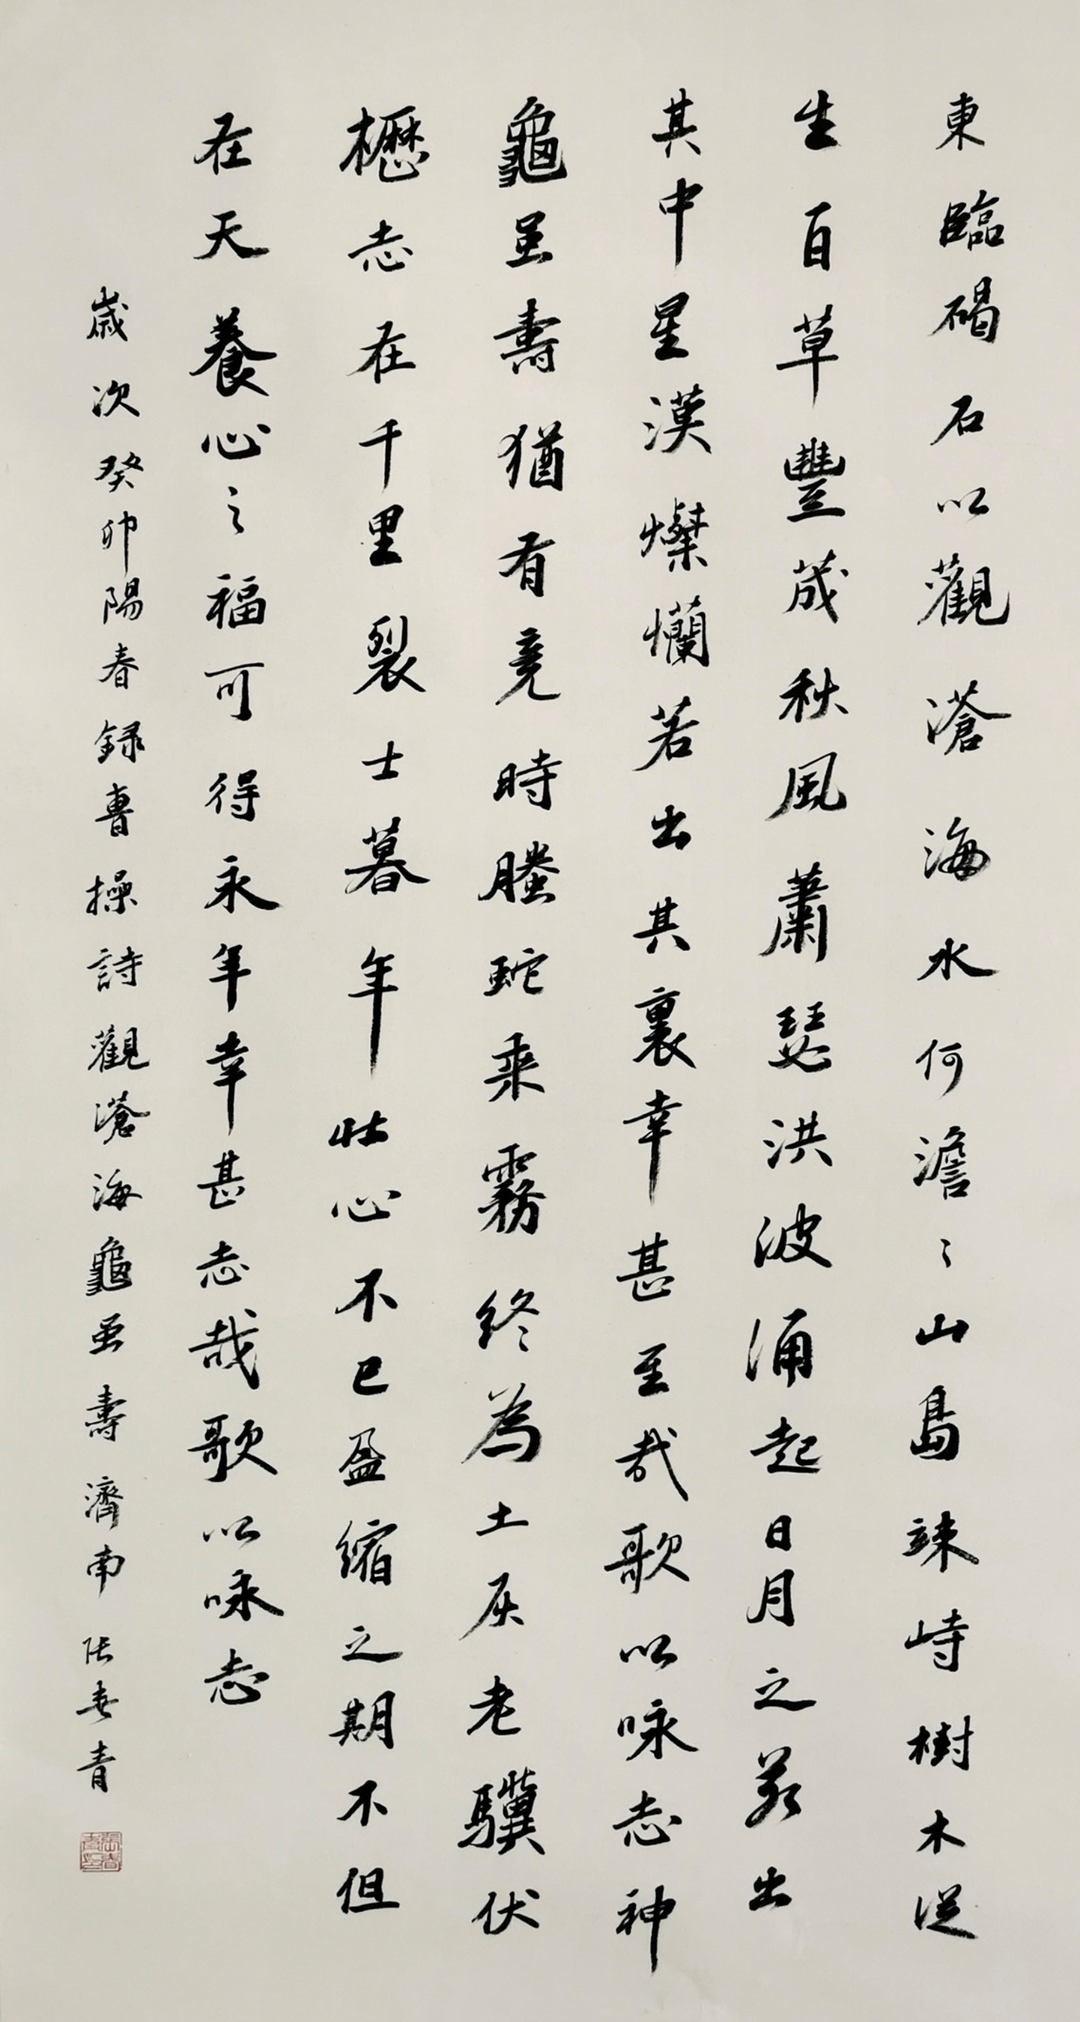 東臨碣石以觀滄海水何澹〻山島竦峙樹木從
生百草豐茂秋風蕭瑟洪波涌起日月之若出
其中星漢燦爛若出其裏幸甚至哉歌以咏志神
龜虽壽猶有竟時騰蛇乘霧終為土灰老驥伏
櫪志在千里裂士暮年壮心不已盈縮之期不但
在天養心之福可得永年幸甚志哉歌以咏志
歲次癸卯陽春録曹操詩觀滄海龜虽壽濟南張春青